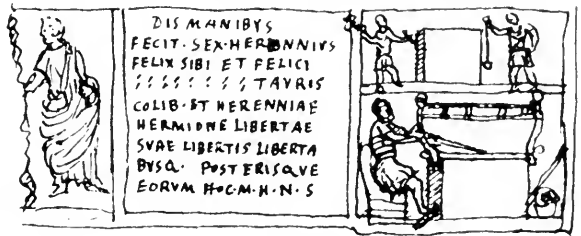 DIS MANIBVS
FECIT · SEX · HERENNIVS
FELIX SIBI ET FELICI
TAVRIS
COLIB · ET HERENNIAE
HERMIONE LIBERTAE
SVAE LIBERTIS LIBERTA
BVSQ · POSTERISQVE
EORVM H·C·M·H·N·S